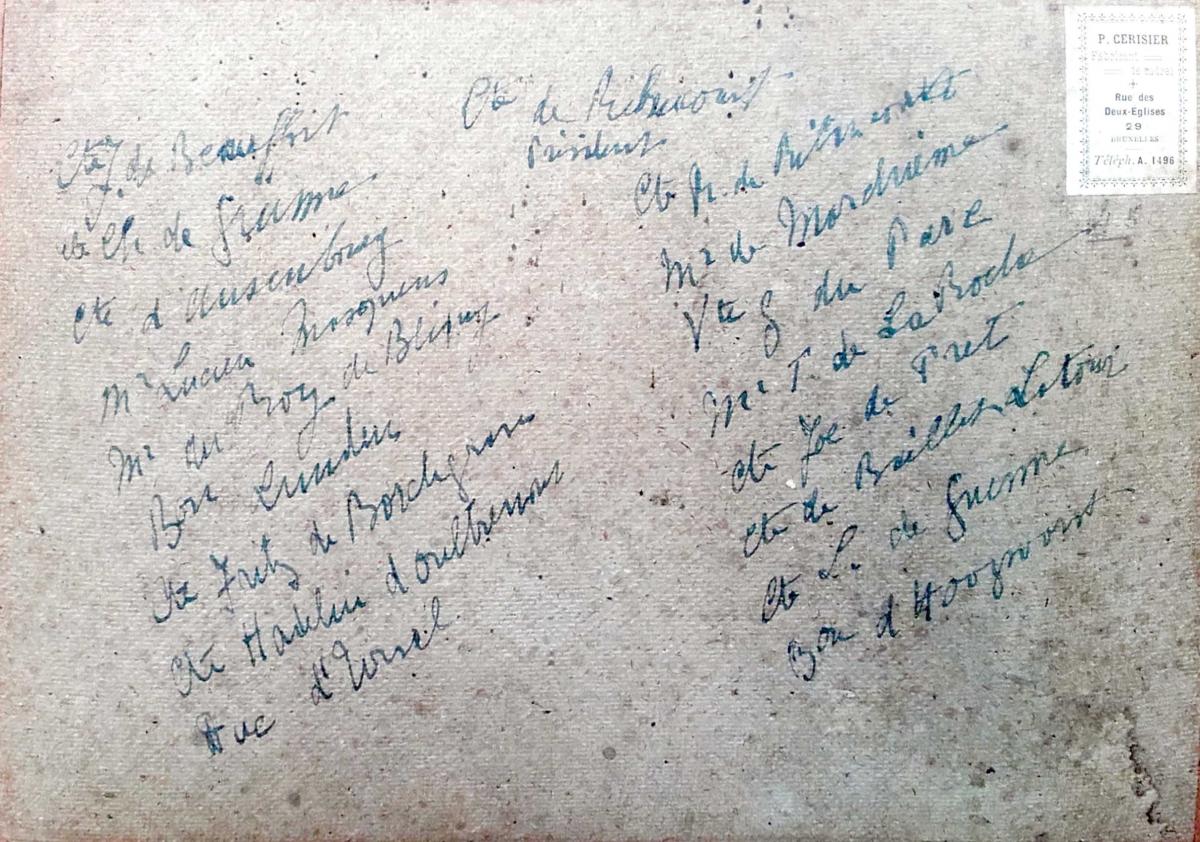 Cte de Ribaucourt
Président
Cte J. de Beauffort
Cte Ch de Grünne
Cte d'Ansembourg
Mr Lucien Mosqueus
Mr du Roy de Blicquy
Bon Lunden
Cte Fritz de Borchgrave
Cte Hadelin d'oultremont
Duc d'Ursel
Cte R. de Ribaucourt
Mr de
Vte G du Parc
Mr T. de La Roche
Cte Joe de Pret
Cte de Baillet Latour
Cte L. de Grunne
Bon d'Hoogvorst
P. CERISIER
Fabricant
Rue des
Deux-Eglises
29
BRUXELLES
Téléph. A. 1496